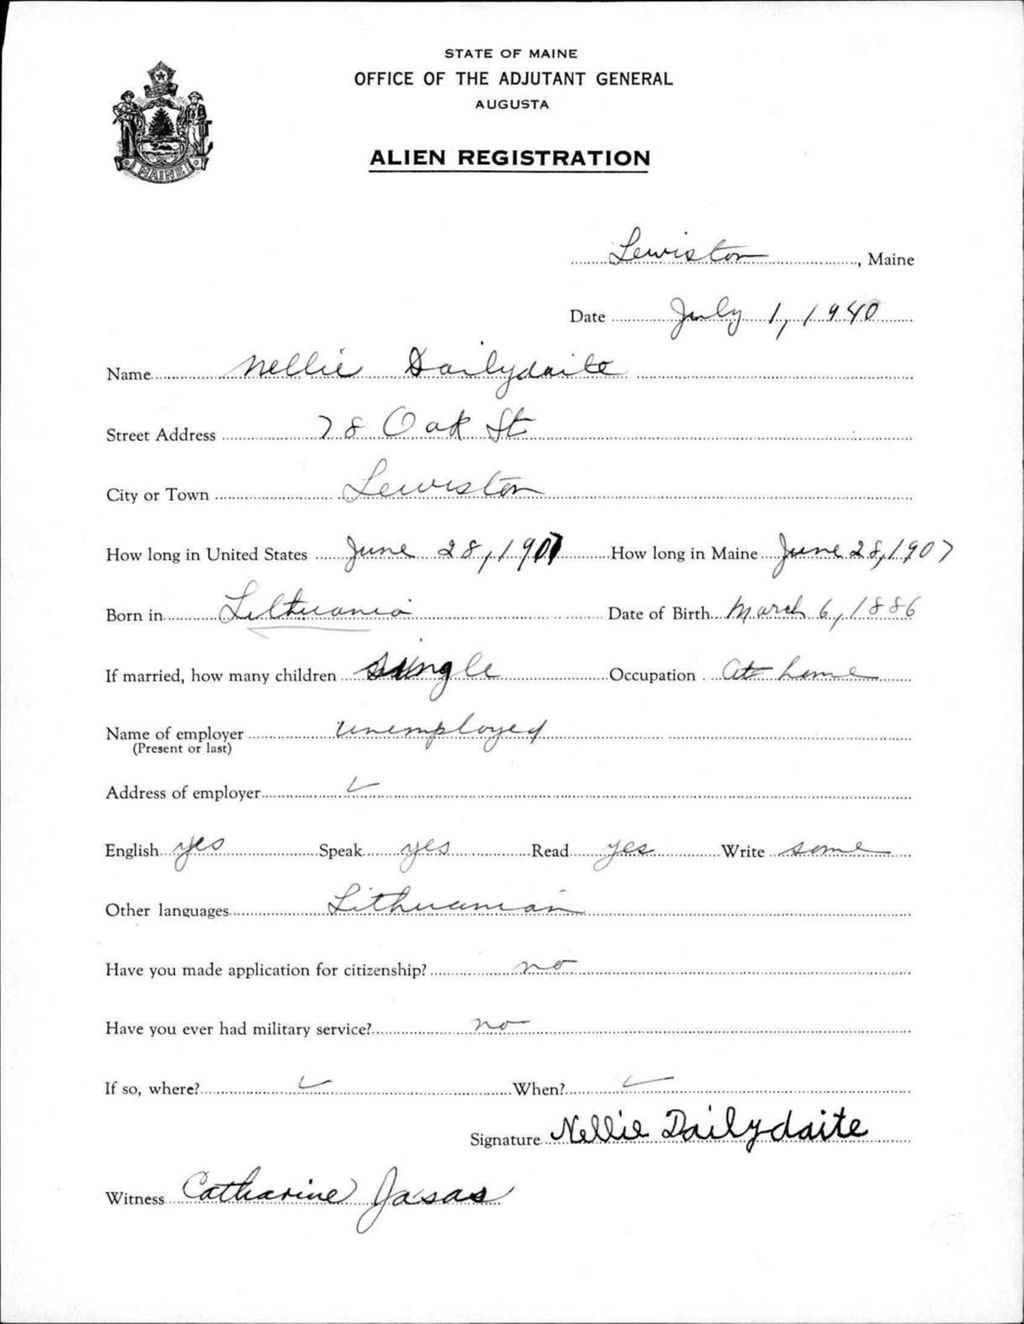 STATE OF MAINE
OFFICE OF THE ADJUTANT GENERAL
AUGUSTA
ALIEN REGISTRATION
MAINE
Lewiston, Maine
Date July 1, 1940
Name Nellie Dailydaite
Street Address 78 Oak St
City or Town Lewiston
How long in United States June 28, 1907 How long in Maine June 28, 1907
Born in Lithuania Date of Birth March 6, 1886
If married, how many children single Occupation At home
Name of employer unemployed
(Present or last)
Address of employer
English yes Speak yes Read yes Write some
Other languages Lithuanian
Have you made application for citizenship? no
Have you ever had military service? no
If so, where? When?
Signature Nellie Dailydaite
Witness Catharine Jasas